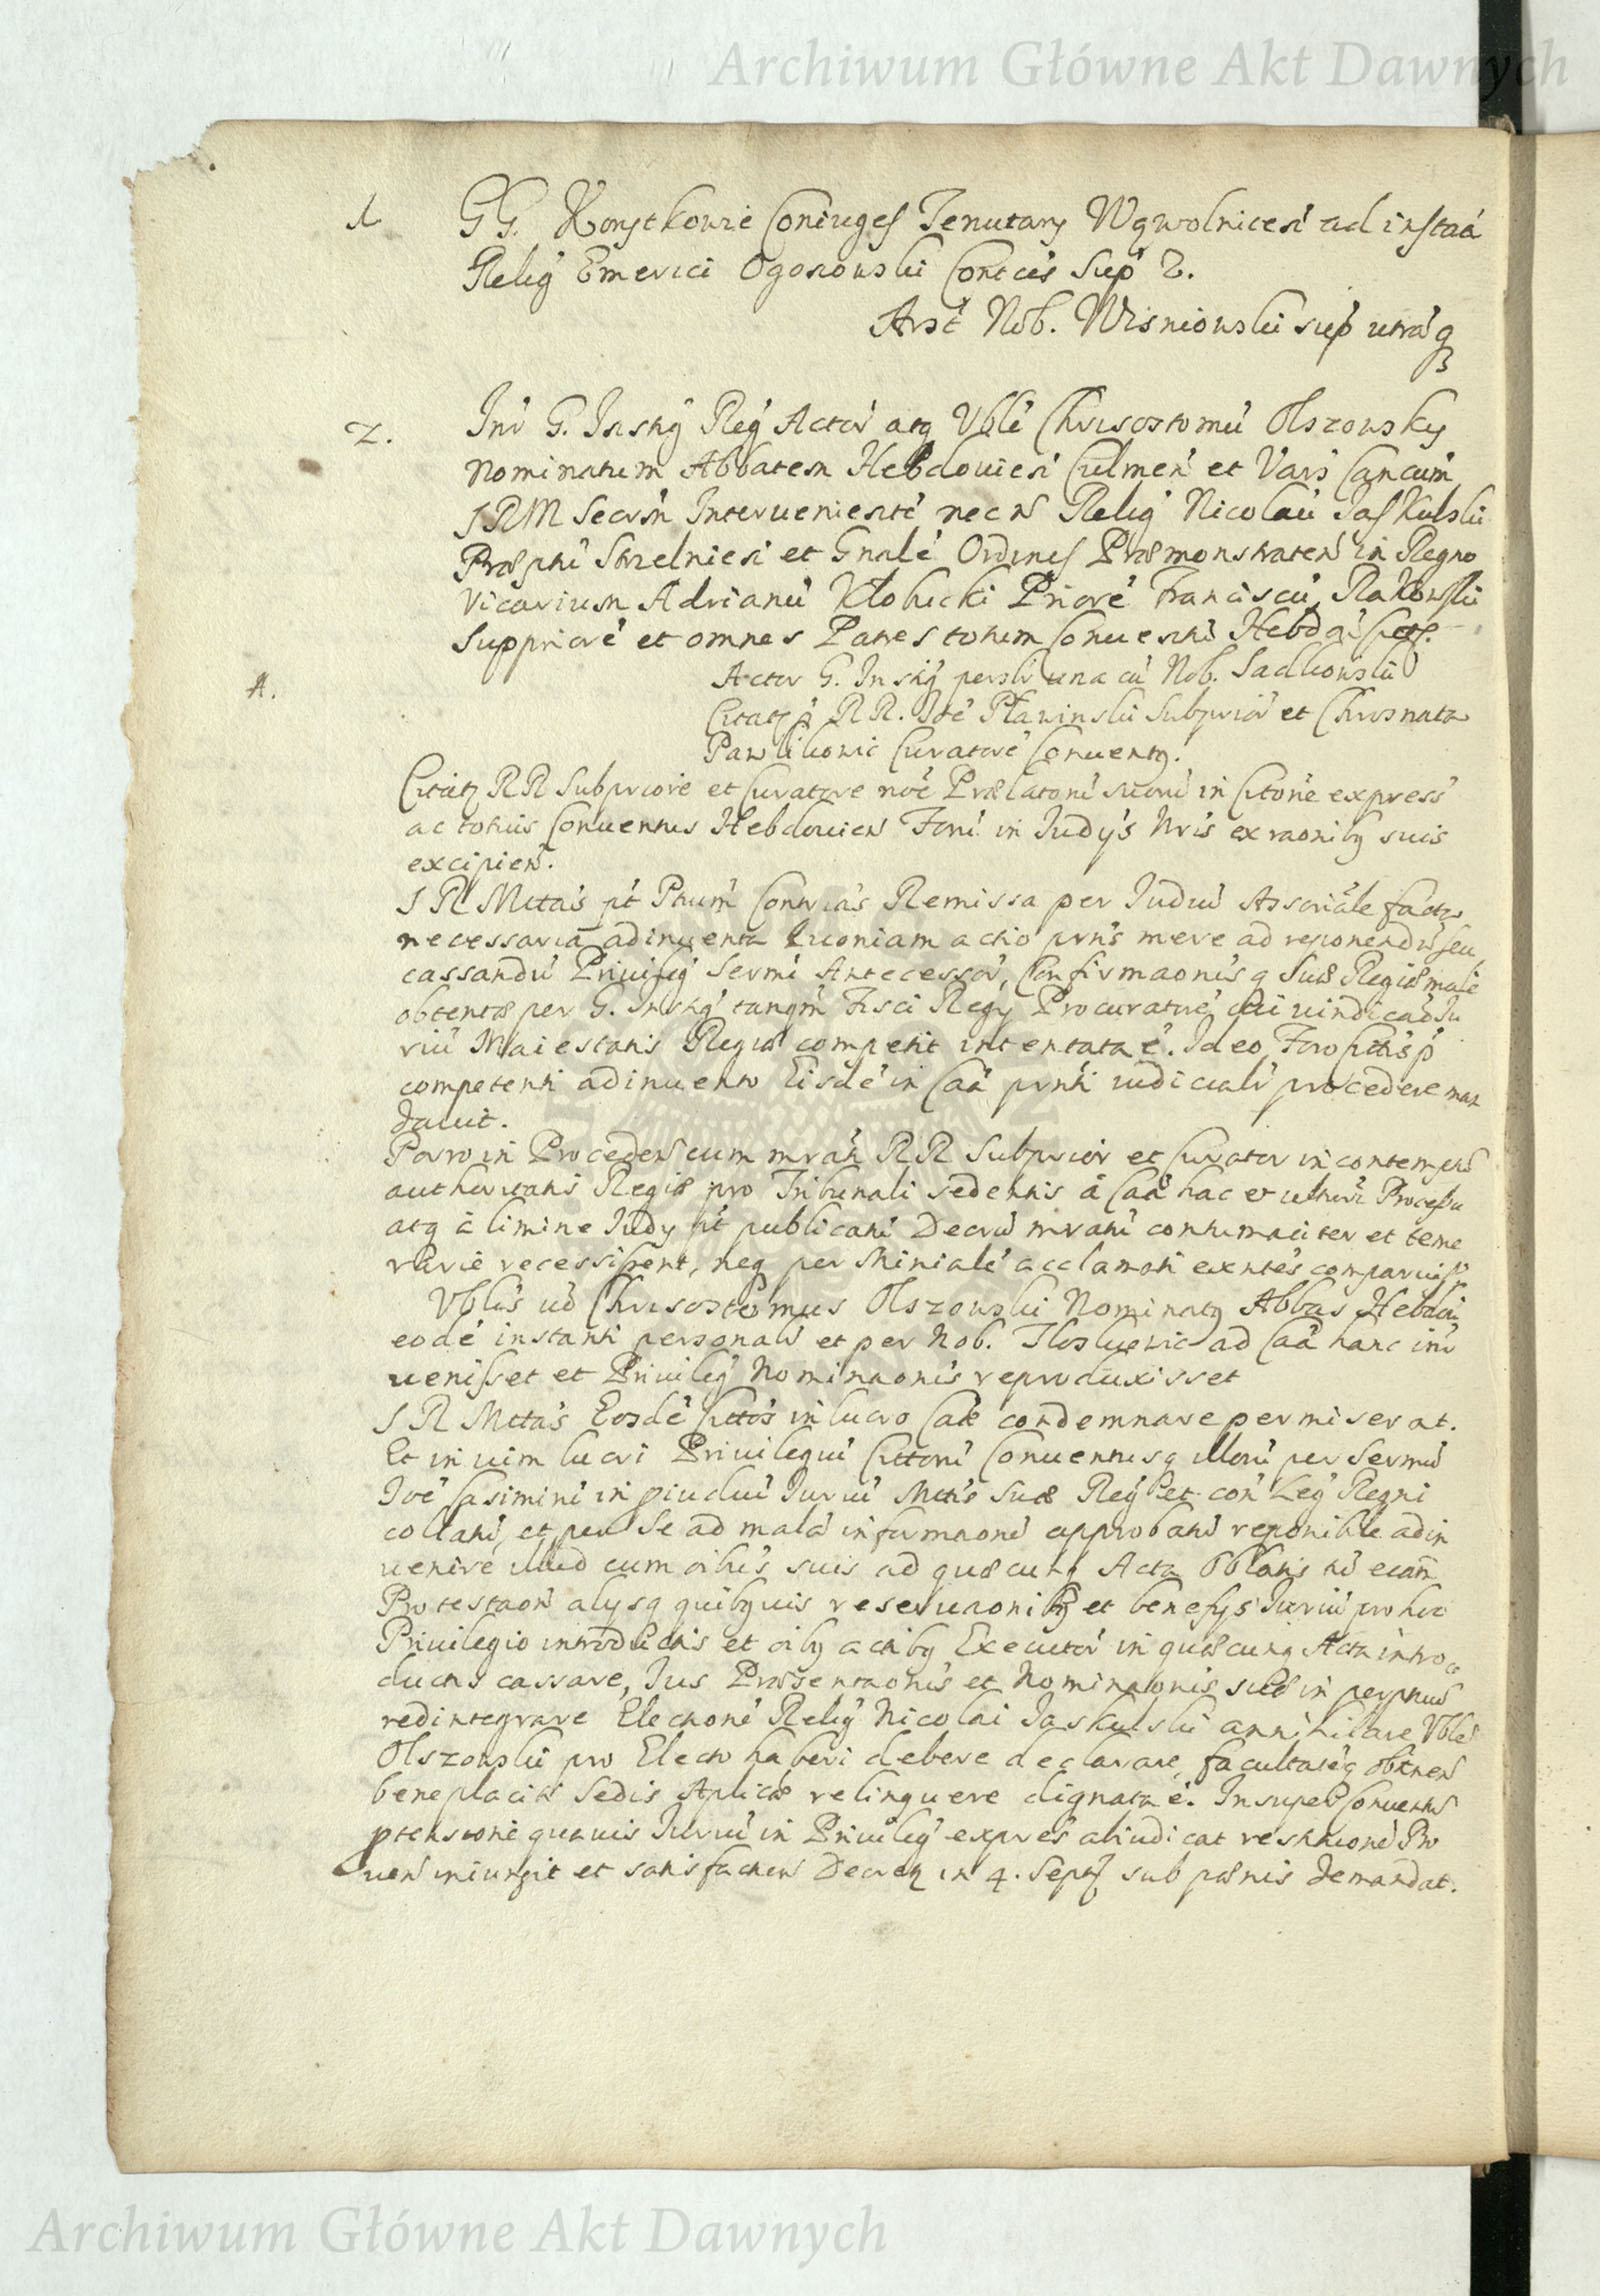 Archiwum Główne Akt Dawnych
1 GG. Konstkowie Coniuges Tenutary Wąwolnicesi ad instaā
Relig Emerici Ogonowski Contces Sup 2.
Arst Nob. Wisniowski sup utraq
2. Int G. Instig Reg Actor atq Vble Chrisostomū Olszowsky
Nominatum Abbatem Hebdouiesi Culmen et Vars Cancum
SRM Secrm Interuenientē necn Relig Nicolaū Jaskulski
Præptū Strzelniesi et Gnalē Ordinis Præmonstraten in Regno
Vicarium Adrianū Kłobucki Priorē Franciscū Rakowski
Suppriorē et omnes Patres totum Conuentū Hebdoi Citos.
Actor G. Instig persl una cū Nob. Sadkowski
A. Citati p RR. Joē Pławinski Subprior et Chrosnata
Pawlikowic Curatorē Conuentq.
Citatq RR Subpriore et Curatore noē Prælatorū suorū in Citone express
ac totius Conuentus Hebdouien Fori in Judys Nris ex raonibq suis
excipien.
SR Mttas pt Pnum Contrias Remissa per Judiū Assoriale factis
necessaria adinuenta Quoniam actio prns mere ad reponendū seu
cassandū Priuileg Sermi Antecessor, Confirmaonisq Suæ Regiæ male
obtentæ per G. Instig tanqm Fisci Regy Procuratorē cui uindicaō Ju
riū Maiestatis Regiæ competit intentata ē. Ideo Foro Cittis p
competenti adinuento Eisdē in Caā prnti iudicialr procedere man
dauit.
Porro in Proceden cum mrati RR Subprior et Curator in contemptū
authoritatis Regiæ pro Tribunali sedentis à Caā hac et ulteri Processu
atq à limine Judy pt publicati Decrū mrati contumaciter et teme
rarie recessissent, neq per Minialē acclamati exntes comparuiss
Vblis uō Chrisostomus Olszowski Nominatq Abbas Hebdoi
eodē instanti personalr et per Nob. Iloskiewic ad Caā hanc int
uenisset et Priuileg Nominaonis reproduxisset
SR Mttas Eosdē Cittos in lucro Caæ condemnare permiserat.
Et in uim lucri Priuilegiū Cittorū Conuentusq illorū per Sermū
Joē Casimirū in piudiū Juriū Mttis Suæ Reg et con Leg Regni
collatū, et per Se ad malā informaonē approbatū reponibile adin
uenire illud cum oibus suis ad quæcunq Acta Oblatis nō ecam
Protestaon alysq quibusuis reseruaonibq et benefys Juriū pro hoc
Priuilegio introductis et oibq actibq Executor in quæcunq Acta intro
ductis cassare, Jus Præsentaonis et Nominaonis suæ in perpetuū
redintegrare Electionē Relig Nicolai Jaskulski annihilare Vblē
Olszowski pro Electo haberi debere declarare, facultatēq obtinen
beneplaciti Sedis Aplicæ relinquere dignata ē. Insuper Conuentui
ptensionē quamuis Juriū in Priuileg expres abiudicat restitutionē Pro
uen iniungit et satisfactien Decretq in 4. Septq sub pænis demandat.
Archiwum Główne Akt Dawnych